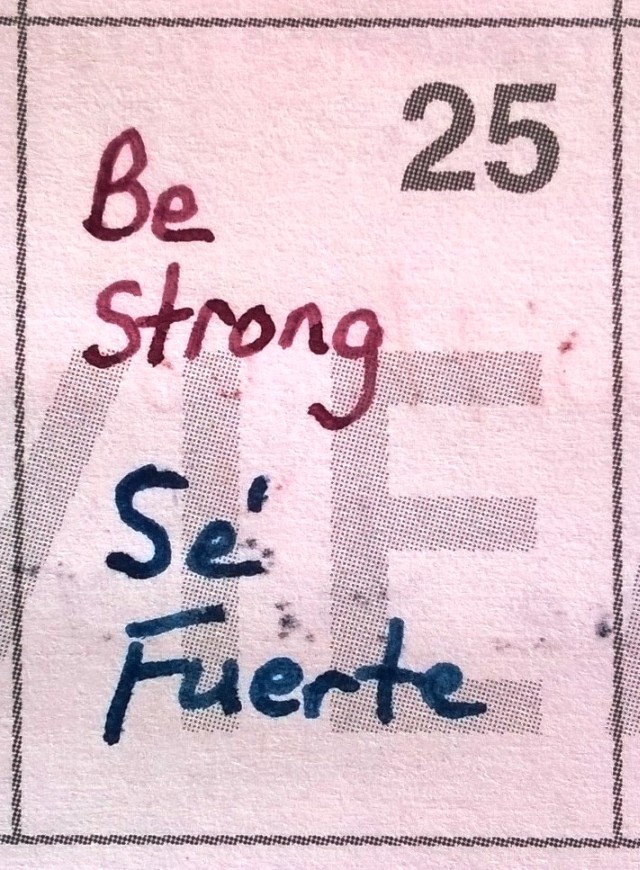 25
Be
Strong
Sé
Fuerte